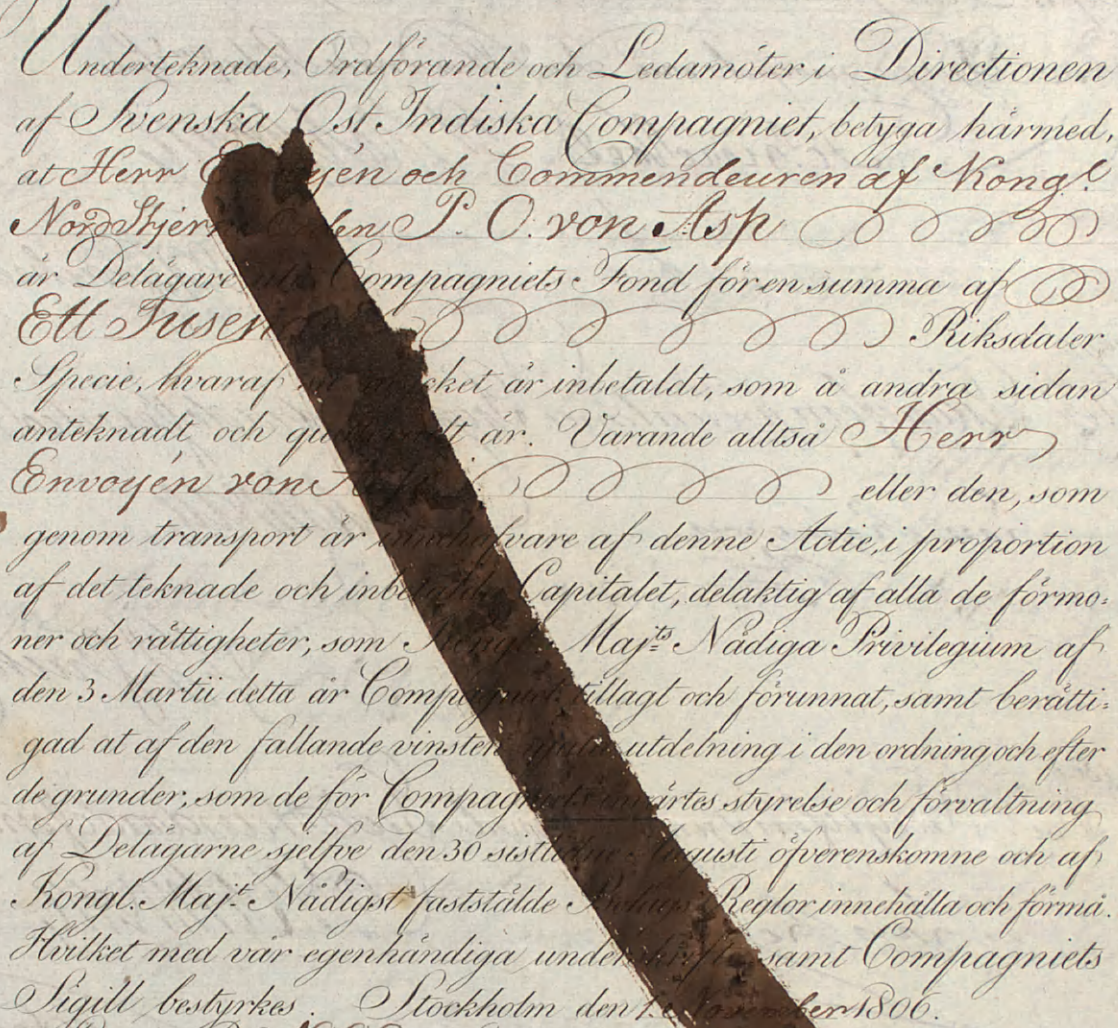 Underteknade, Ordförande och Ledamöter i Directionen
af Svenska Ost Indiska Compagniet, betyga härmed,
at Herr Envoyén och Commendeuren af Kongl
NordStjerne Orden P. O. von Asp
är Delägare uti Compagniets Fond för en summa af
Ett Tusen Riksdaler
Specie, hvaraf så mycket är inbetaldt, som å andra sidan
anteknadt och qvitteradt är. Varande alltså Herr
Envoyén von Asp eller den, som
genom transport är innehafvare af denne Actie, i proportion
af det teknade och inbetalde Capitalet, delaktig af alla de förmo=
ner och rättigheter, som Kongl. Majts Nådiga Privilegium af
den 3 Martii detta år Compagniet tillagt och förunnat, samt berätti=
gad at af den fallande vinsten utdelning i den ordning och efter
de grunder, som de för Compagniets inwärtes styrelse och förvaltning
af Delägarne sjelfve den 30 sistledne Augusti öfverenskomne och af
Kongl. Majt Nådigst fastställde Bolags Reglor innehålla och förmå.
Hvilket med vår egenhändiga underskrift samt Compagniets
Sigill bestyrkes. Stockholm den 1. November 1806.